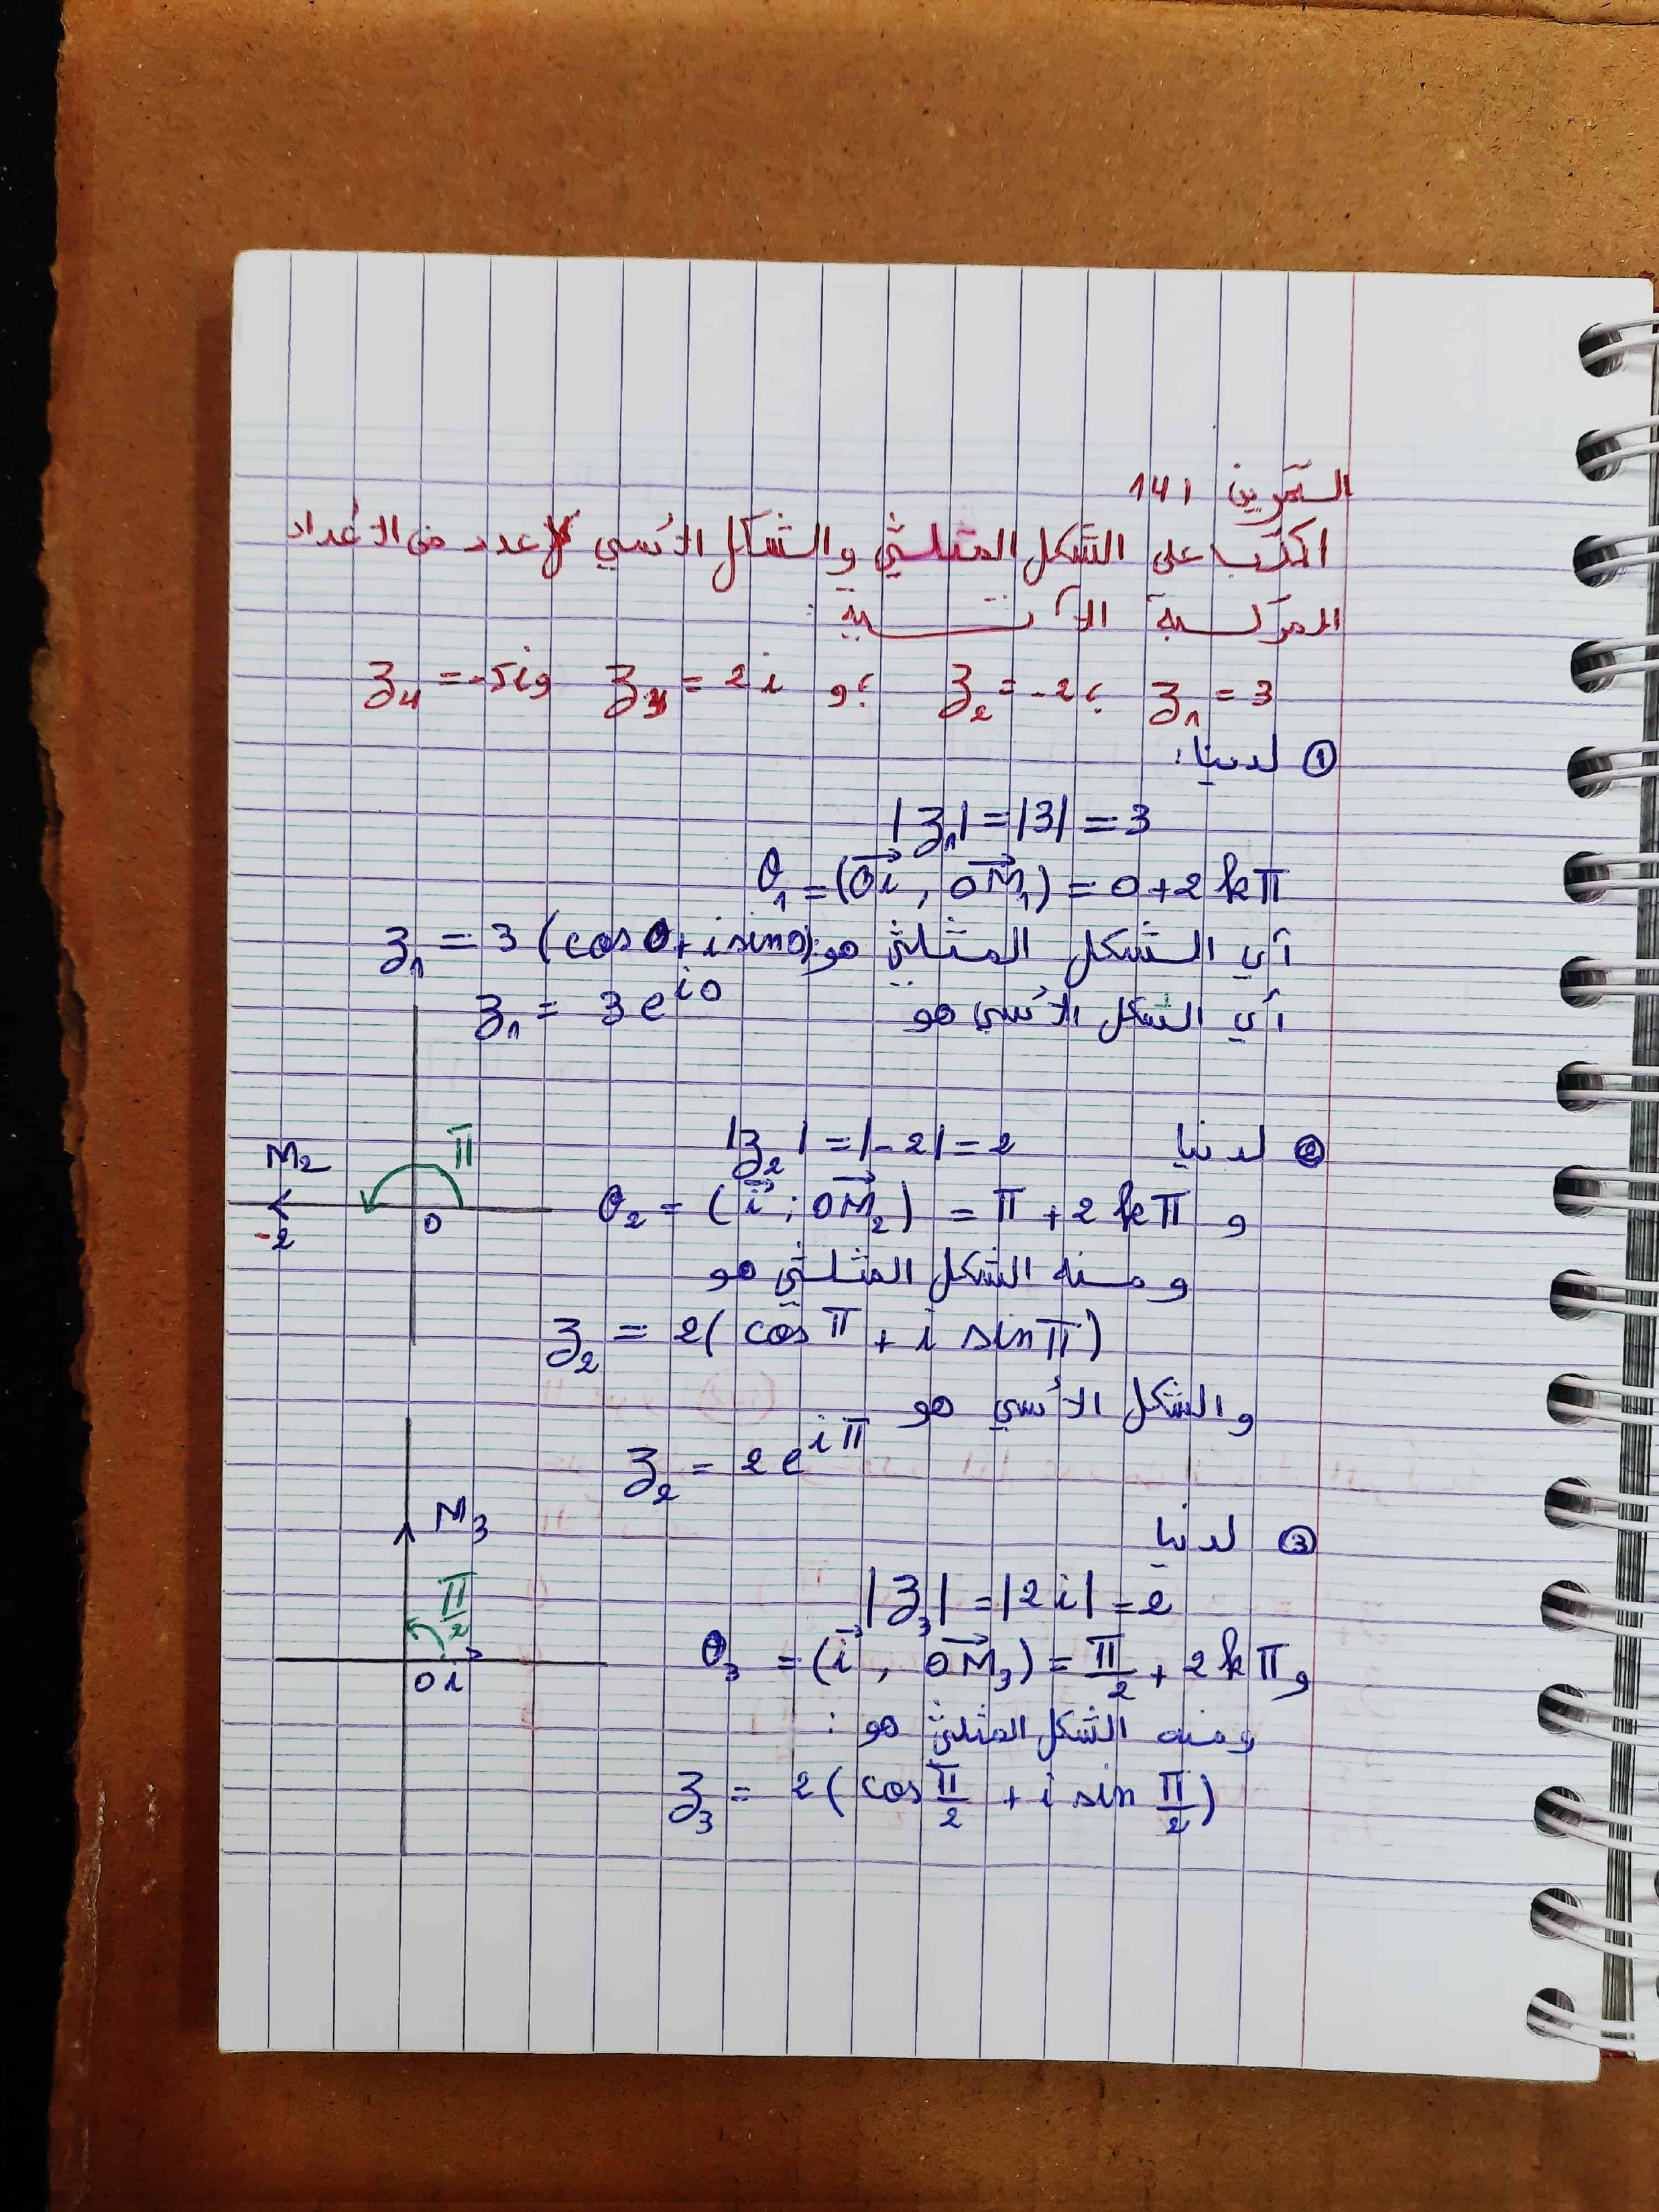 التمرين 141
اكتب على الشكل المثلثي والشكل الأسي لـ عدد من الأعداد
المركبة الآتية :
z₁ = 3 ؛ z₂ = -2 ؛ و z₃ = 2i و z₄ = -5i
① لدينا :
|z₁| = |3| = 3
θ₁ = (Oi, OM₁) = 0 + 2kπ
أي الشكل المثلثي هو: z₁ = 3 (cos 0 + i sin 0)
أي الشكل الأسي هو z₁ = 3e^{i0}
② لدينا |z₂| = |-2| = 2
و θ₂ = (i ; OM₂) = π + 2kπ
M₂
π
-2
0
ومنه الشكل المثلثي هو
z₂ = 2( cos π + i sin π)
والشكل الأسي هو
z₂ = 2e^{iπ}
③ لدينا
|z₃| = |2i| = 2
و θ₃ = (i, OM₃) = π/2 + 2kπ
M₃
π/2
0 i
ومنه الشكل المثلثي هو :
z₃ = 2( cos π/2 + i sin π/2)